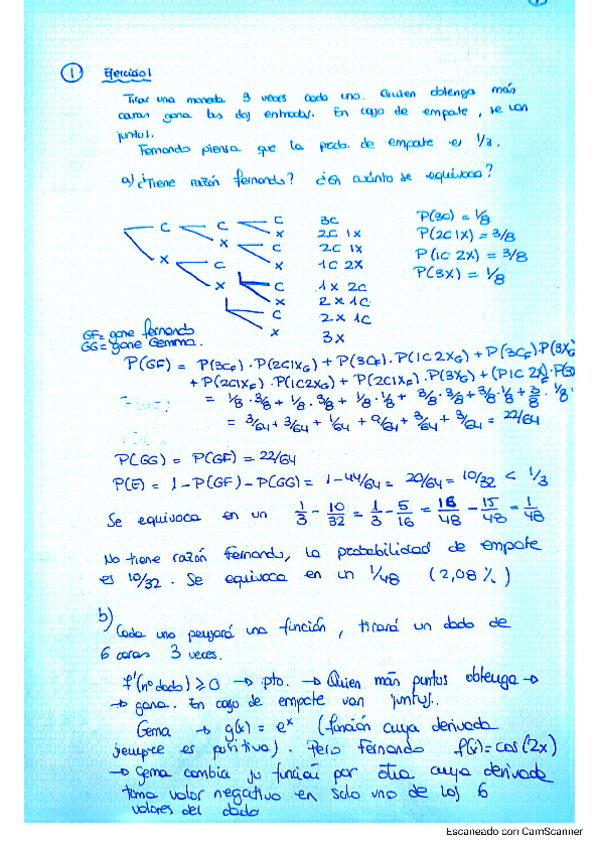 ① Ejercicio 1
Tirar una moneda 3 veces cada uno. Quien obtenga más
caras gana las dos entradas. En caso de empate, se van
juntos.
Fernando piensa que la prob. de empate es 1/3.
a) ¿Tiene razón Fernando? ¿En cuánto se equivoca?
C C C 3C P(3C) = 1/8
X 2C 1X P(2C1X) = 3/8
X C 2C 1X P(1C 2X) = 3/8
X 1C 2X P(3X) = 1/8
X C C 1X 2C
X X 2X 1C
C 2X 1C
X 3X
GF = gane Fernando
GG = gane Gemma.
P(GF) = P(3C_F) · P(2C1X_G) + P(3C_F) · P(1C 2X_G) + P(3C_F) · P(3X_G
+ P(2C1X_F) · P(1C2X_G) + P(2C1X_F) · P(3X_G) + (P(1C 2X)_F · P(3X
= 1/8 · 3/8 + 1/8 · 3/8 + 1/8 · 1/8 + 3/8 · 3/8 + 3/8 · 1/8 + 3/8 · 1/8
= 3/64 + 3/64 + 1/64 + 9/64 + 3/64 + 3/64 = 22/64
P(GG) = P(GF) = 22/64
P(E) = 1 - P(GF) - P(GG) = 1 - 44/64 = 20/64 = 10/32 < 1/3
Se equivoca en un 1/3 - 10/32 = 1/3 - 5/16 = 16/48 - 15/48 = 1/48
No tiene razón Fernando, la probabilidad de empate
es 10/32. Se equivoca en un 1/48 (2,08%)
b)
Cada uno pensará una función, tirará un dado de
6 caras 3 veces.
f'(nº dado) ≥ 0 → pto. → Quien más puntos obtenga →
→ gana. En caso de empate van juntos.
Gema → g(x) = e^x (función cuya derivada
siempre es positiva). Pero Fernando f(x) = cos(2x)
→ Gema cambia su función por otra cuya derivada
toma valor negativo en solo uno de los 6
valores del dado
Escaneado con CamScanner